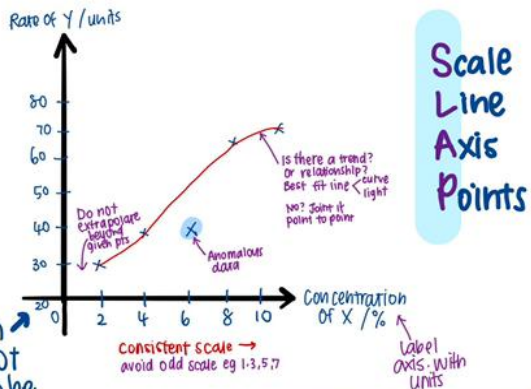 Rate of Y / units
80
70
60
50
40
30
20
0
2
4
6
8
10
Concentration
of X / %
Do not
extrapolate
beyond
given pts
Anomalous
data
Is there a trend?
Or relationship?
Best fit line < curve
light
No? Joint it
point to point
Consistent scale →
avoid odd scale eg 1.3,5,7
Label
axis with
units
Scale
Line
Axis
Points
ot